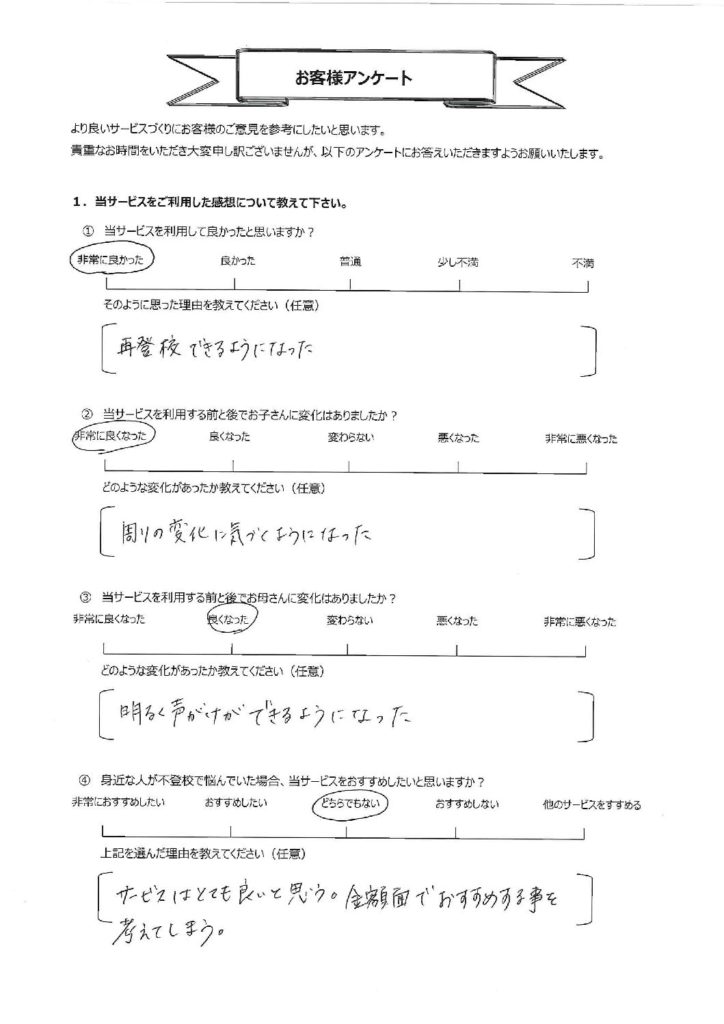 お客様アンケート
より良いサービスづくりにお客様のご意見を参考にしたいと思います。
貴重なお時間をいただき大変申し訳ございませんが、以下のアンケートにお答えいただきますようお願いいたします。
1．当サービスをご利用した感想について教えて下さい。
① 当サービスを利用して良かったと思いますか？
非常に良かった 良かった 普通 少し不満 不満
そのように思った理由を教えてください（任意）
再登校できるようになった
② 当サービスを利用する前と後でお子さんに変化はありましたか？
非常に良くなった 良くなった 変わらない 悪くなった 非常に悪くなった
どのような変化があったか教えてください（任意）
周りの変化に気づくようになった
③ 当サービスを利用する前と後でお母さんに変化はありましたか？
非常に良くなった 良くなった 変わらない 悪くなった 非常に悪くなった
どのような変化があったか教えてください（任意）
明るく声がけができるようになった
④ 身近な人が不登校で悩んでいた場合、当サービスをおすすめしたいと思いますか？
非常におすすめしたい おすすめしたい どちらでもない おすすめしない 他のサービスをすすめる
上記を選んだ理由を教えてください（任意）
サービスはとても良いと思う。金額面でおすすめする事を
考えてしまう。